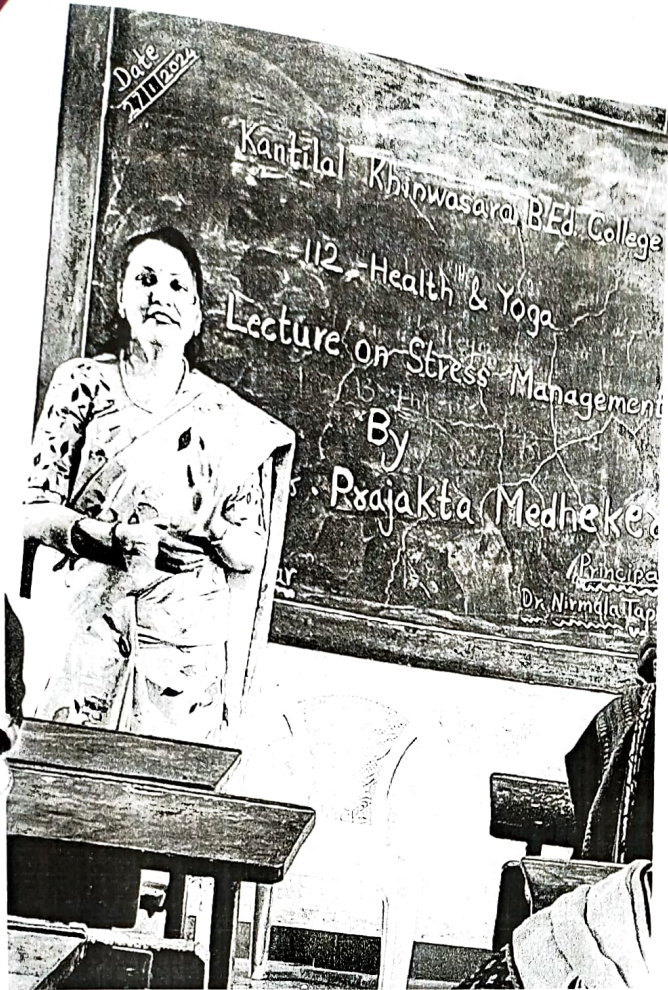 Date
2/1/2024
Kantilal Khinwasara B.Ed. College
112 - Health & Yoga
Lecture on Stress Management
By
Prajakta Medheke
Principa
Dr. Nirmala Tap